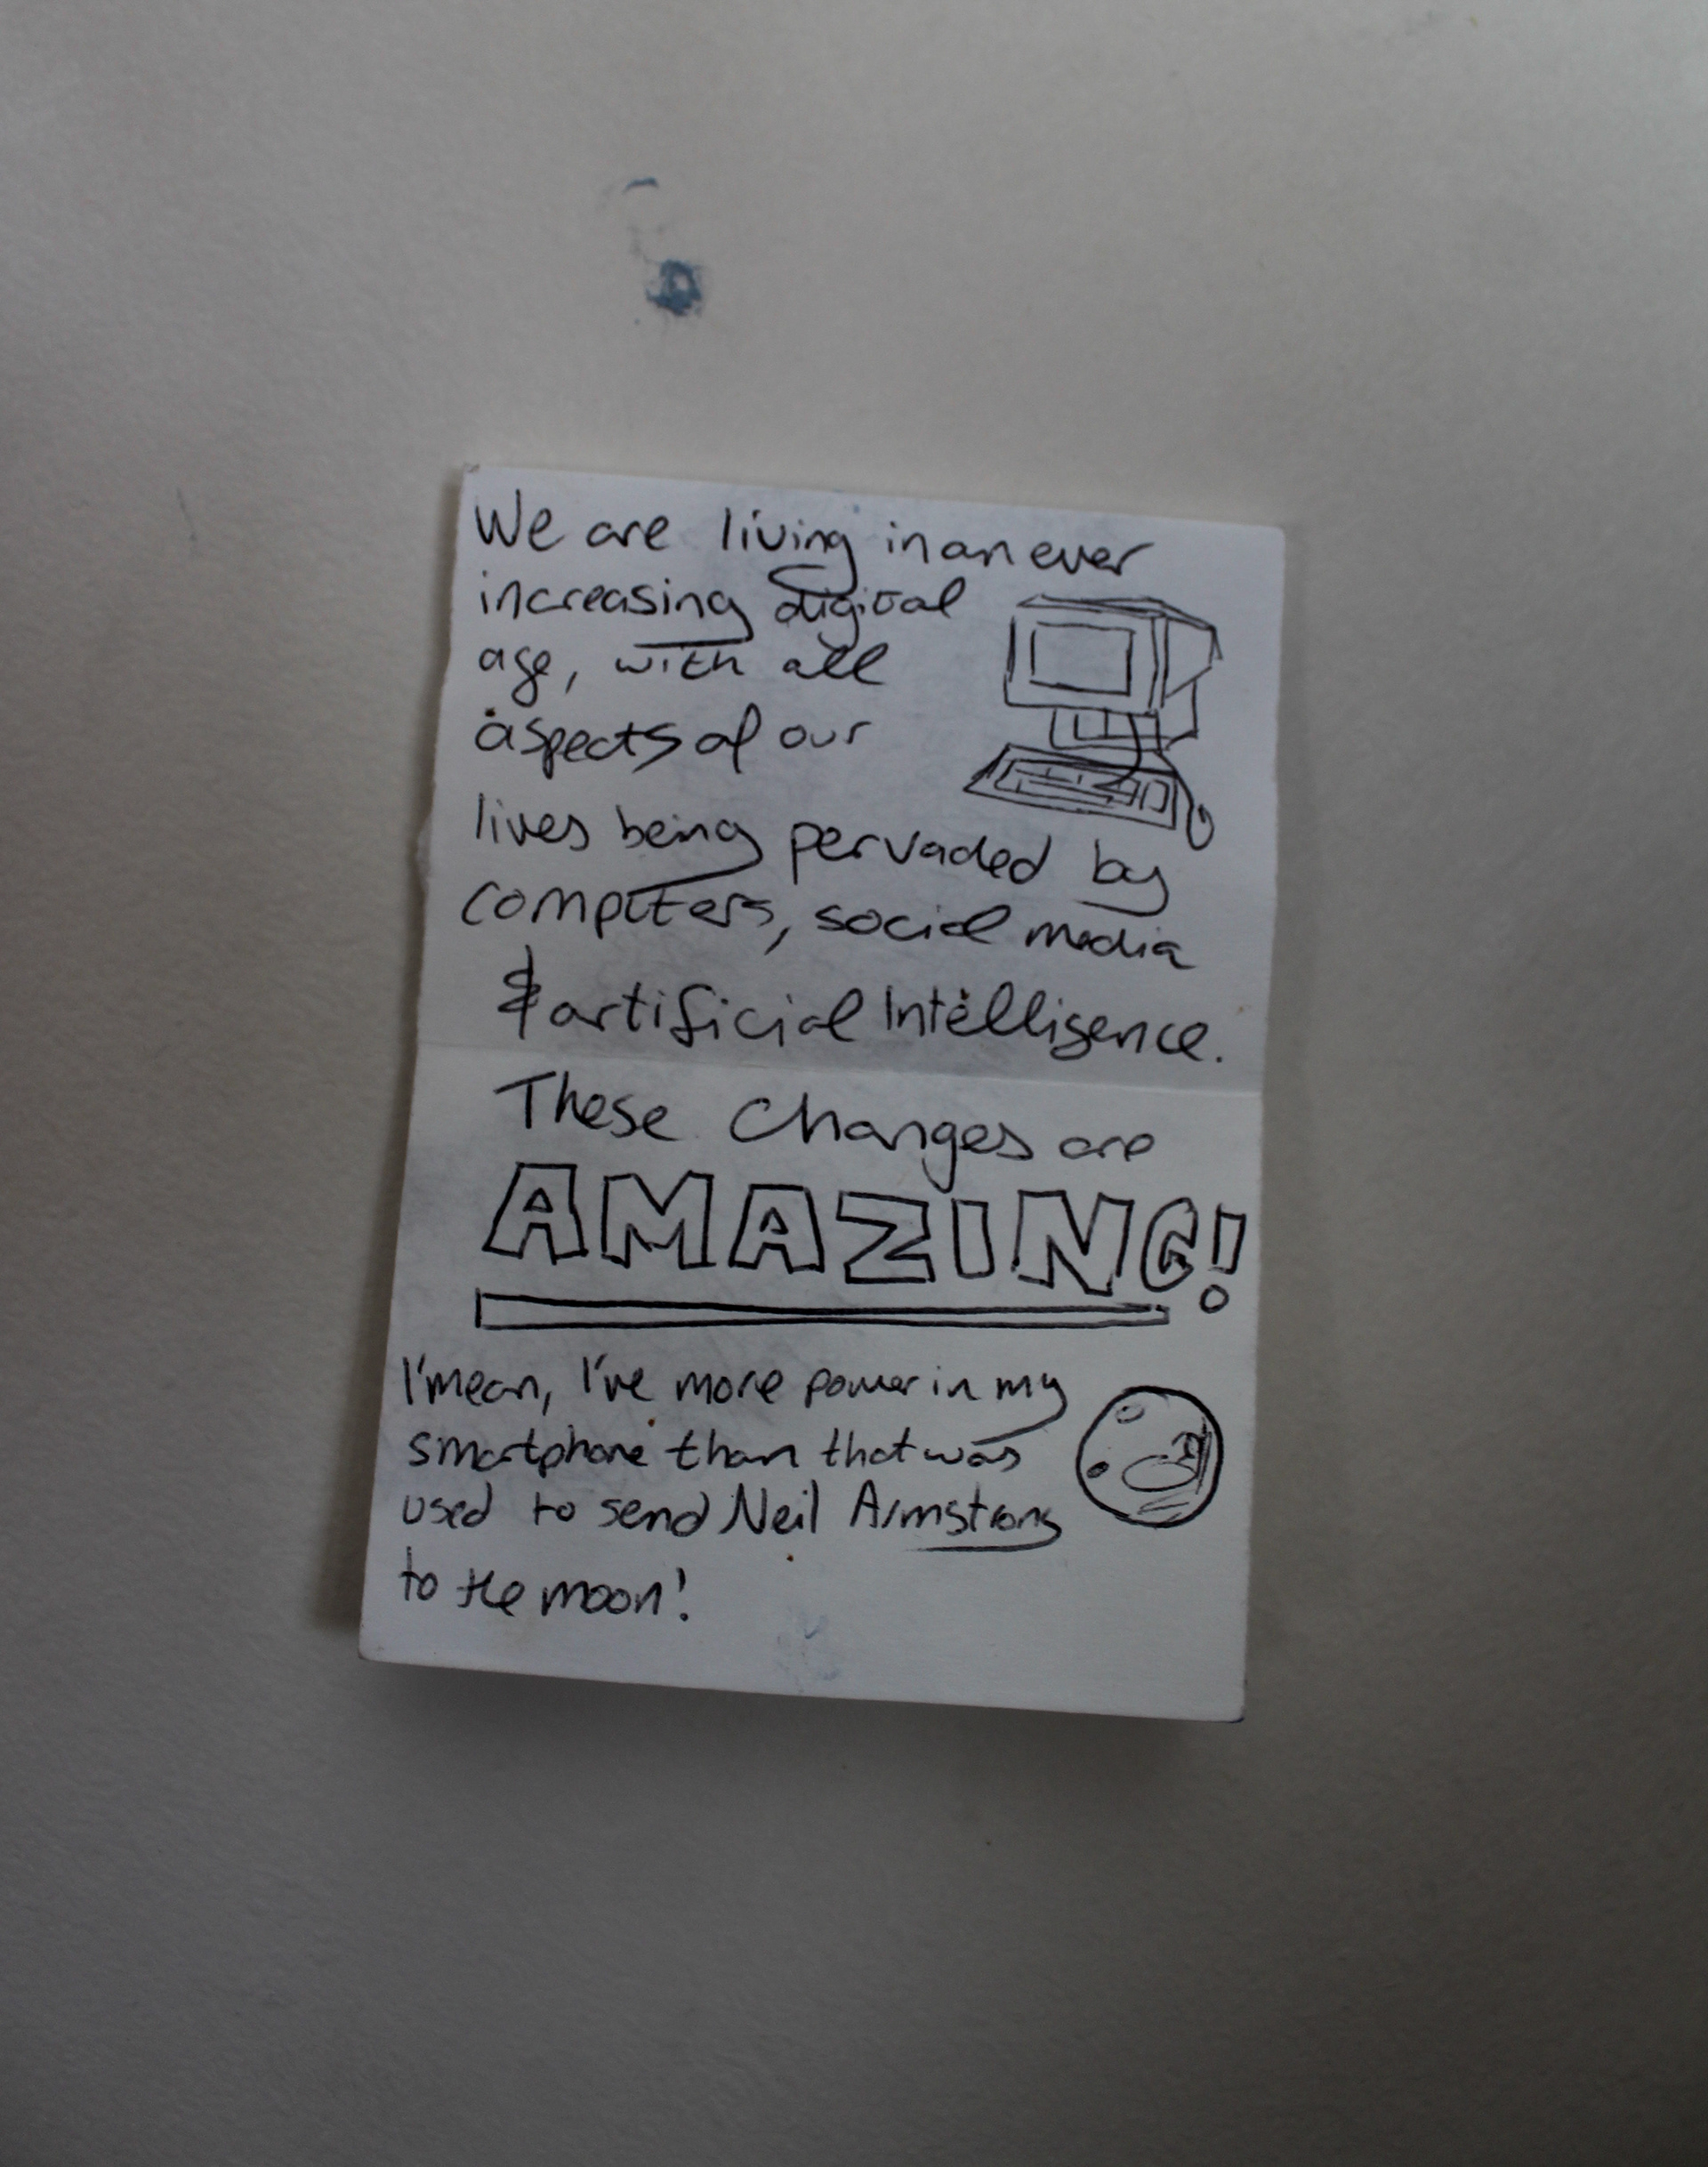 We are living in an ever
increasing digital
age, with all
aspects of our
lives being pervaded by
computers, social media
& artificial Intelligence.
These Changes are
AMAZING!
I'mean, I've more power in my
smartphone than that was
used to send Neil Armstrong
to the moon!